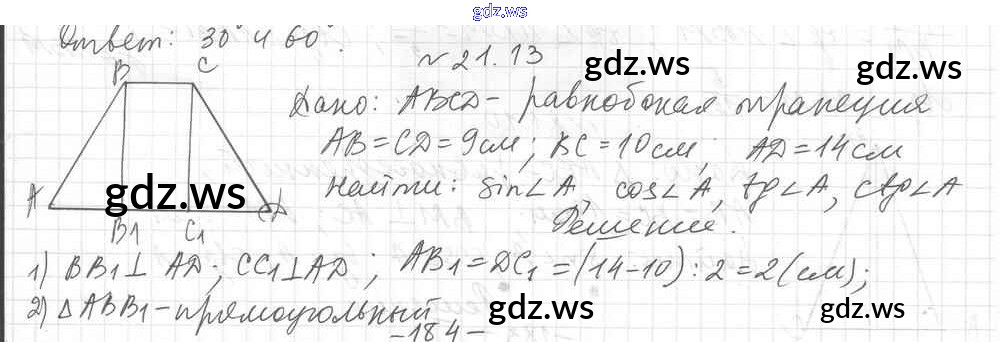 gdz.ws
Ответ: 30° и 60°.
№ 21.13
gdz.ws
gdz.ws
B C
Дано: ABCD - равнобокая трапеция
AB = CD = 9 см; BC = 10 см; AD = 14 см
Найти: sin∠A, cos∠A, tg∠A, ctg∠A
A gdz.ws D
B1 C1
Решение.
1) BB1 ⊥ AD; CC1 ⊥ AD; AB1 = DC1 = (14-10) : 2 = 2 (см);
2) △ABB1 - прямоугольный
gdz.ws
gdz.ws
-184-